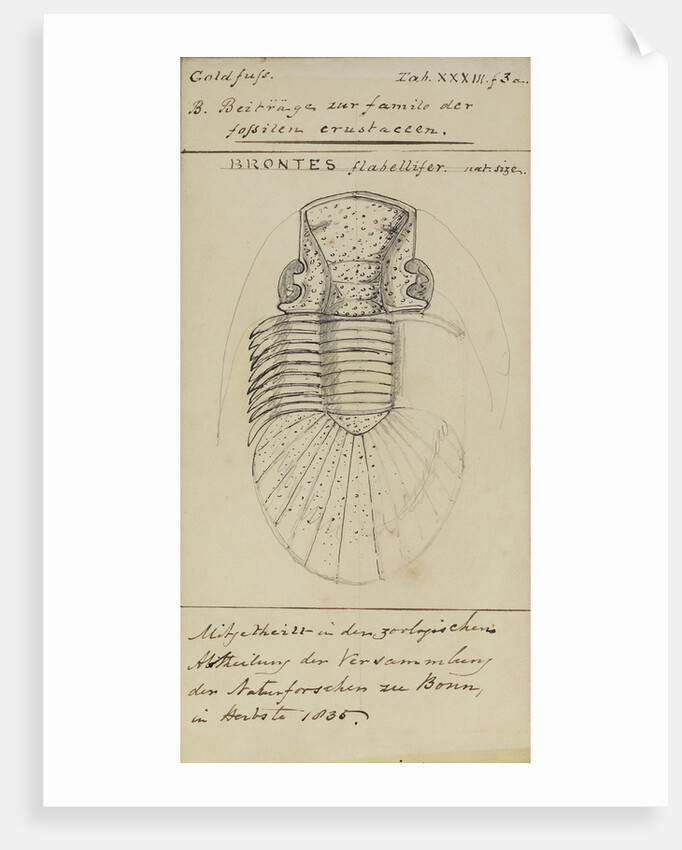 Goldfuſs. Tab. XXXIII. f 3 a.
B. Beiträge zur familo der
foſsilen crustaceen.
BRONTES flabellifer. nat. size.
Mitgetheilt in den zoologischen
Abtheilung der Versammlung
der Naturforschen zu Bonn,
in Herbste 1835.